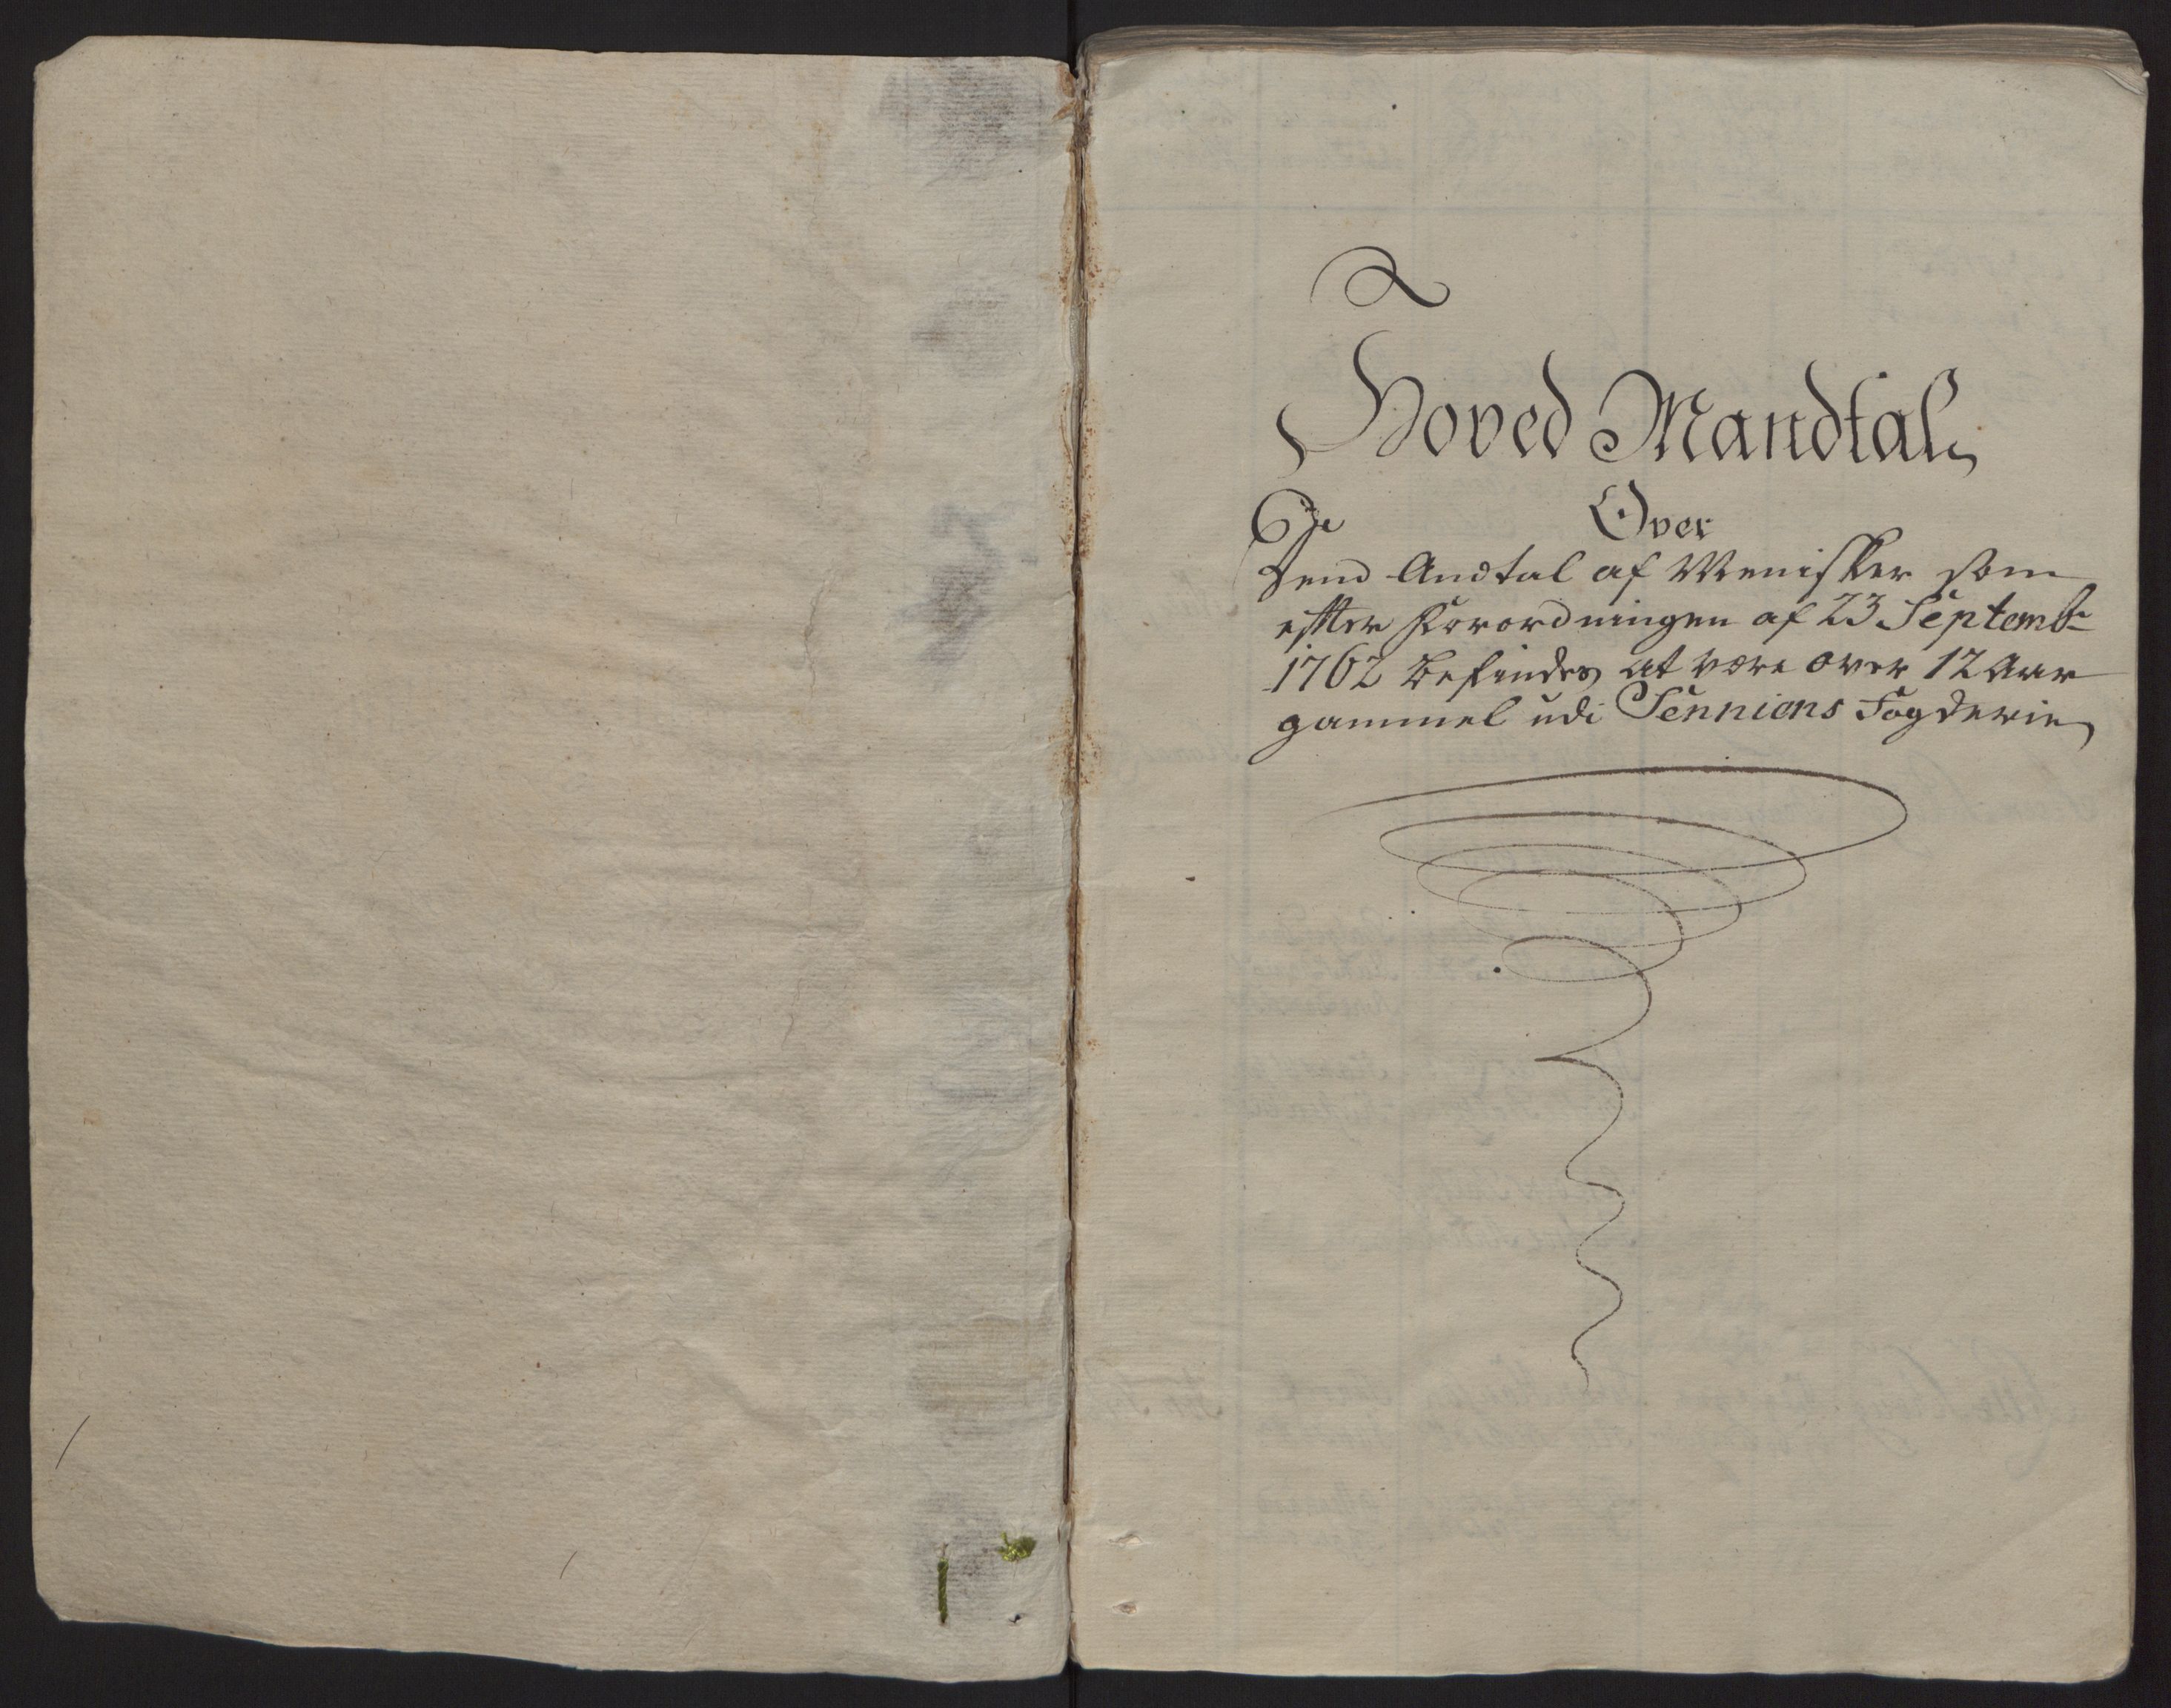 Hoved Mandtal
Over
Dend Andtal af Menisker som
effter Forordningen af 23 Septembr
1762 befindes at være over 12 Aar
gammel udi Senniens Fogderie